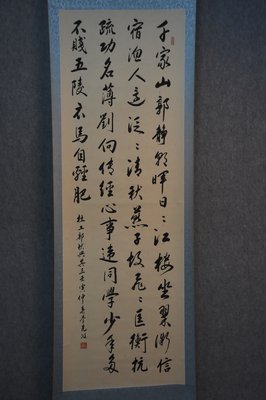 千家山郭靜朝暉日〻江樓坐翠微信
宿漁人還泛〻清秋燕子故飛〻匡衡抗
疏功名薄劉向傳經心事違同學少年多
不賤五陵衣馬自輕肥
杜工部秋興其三